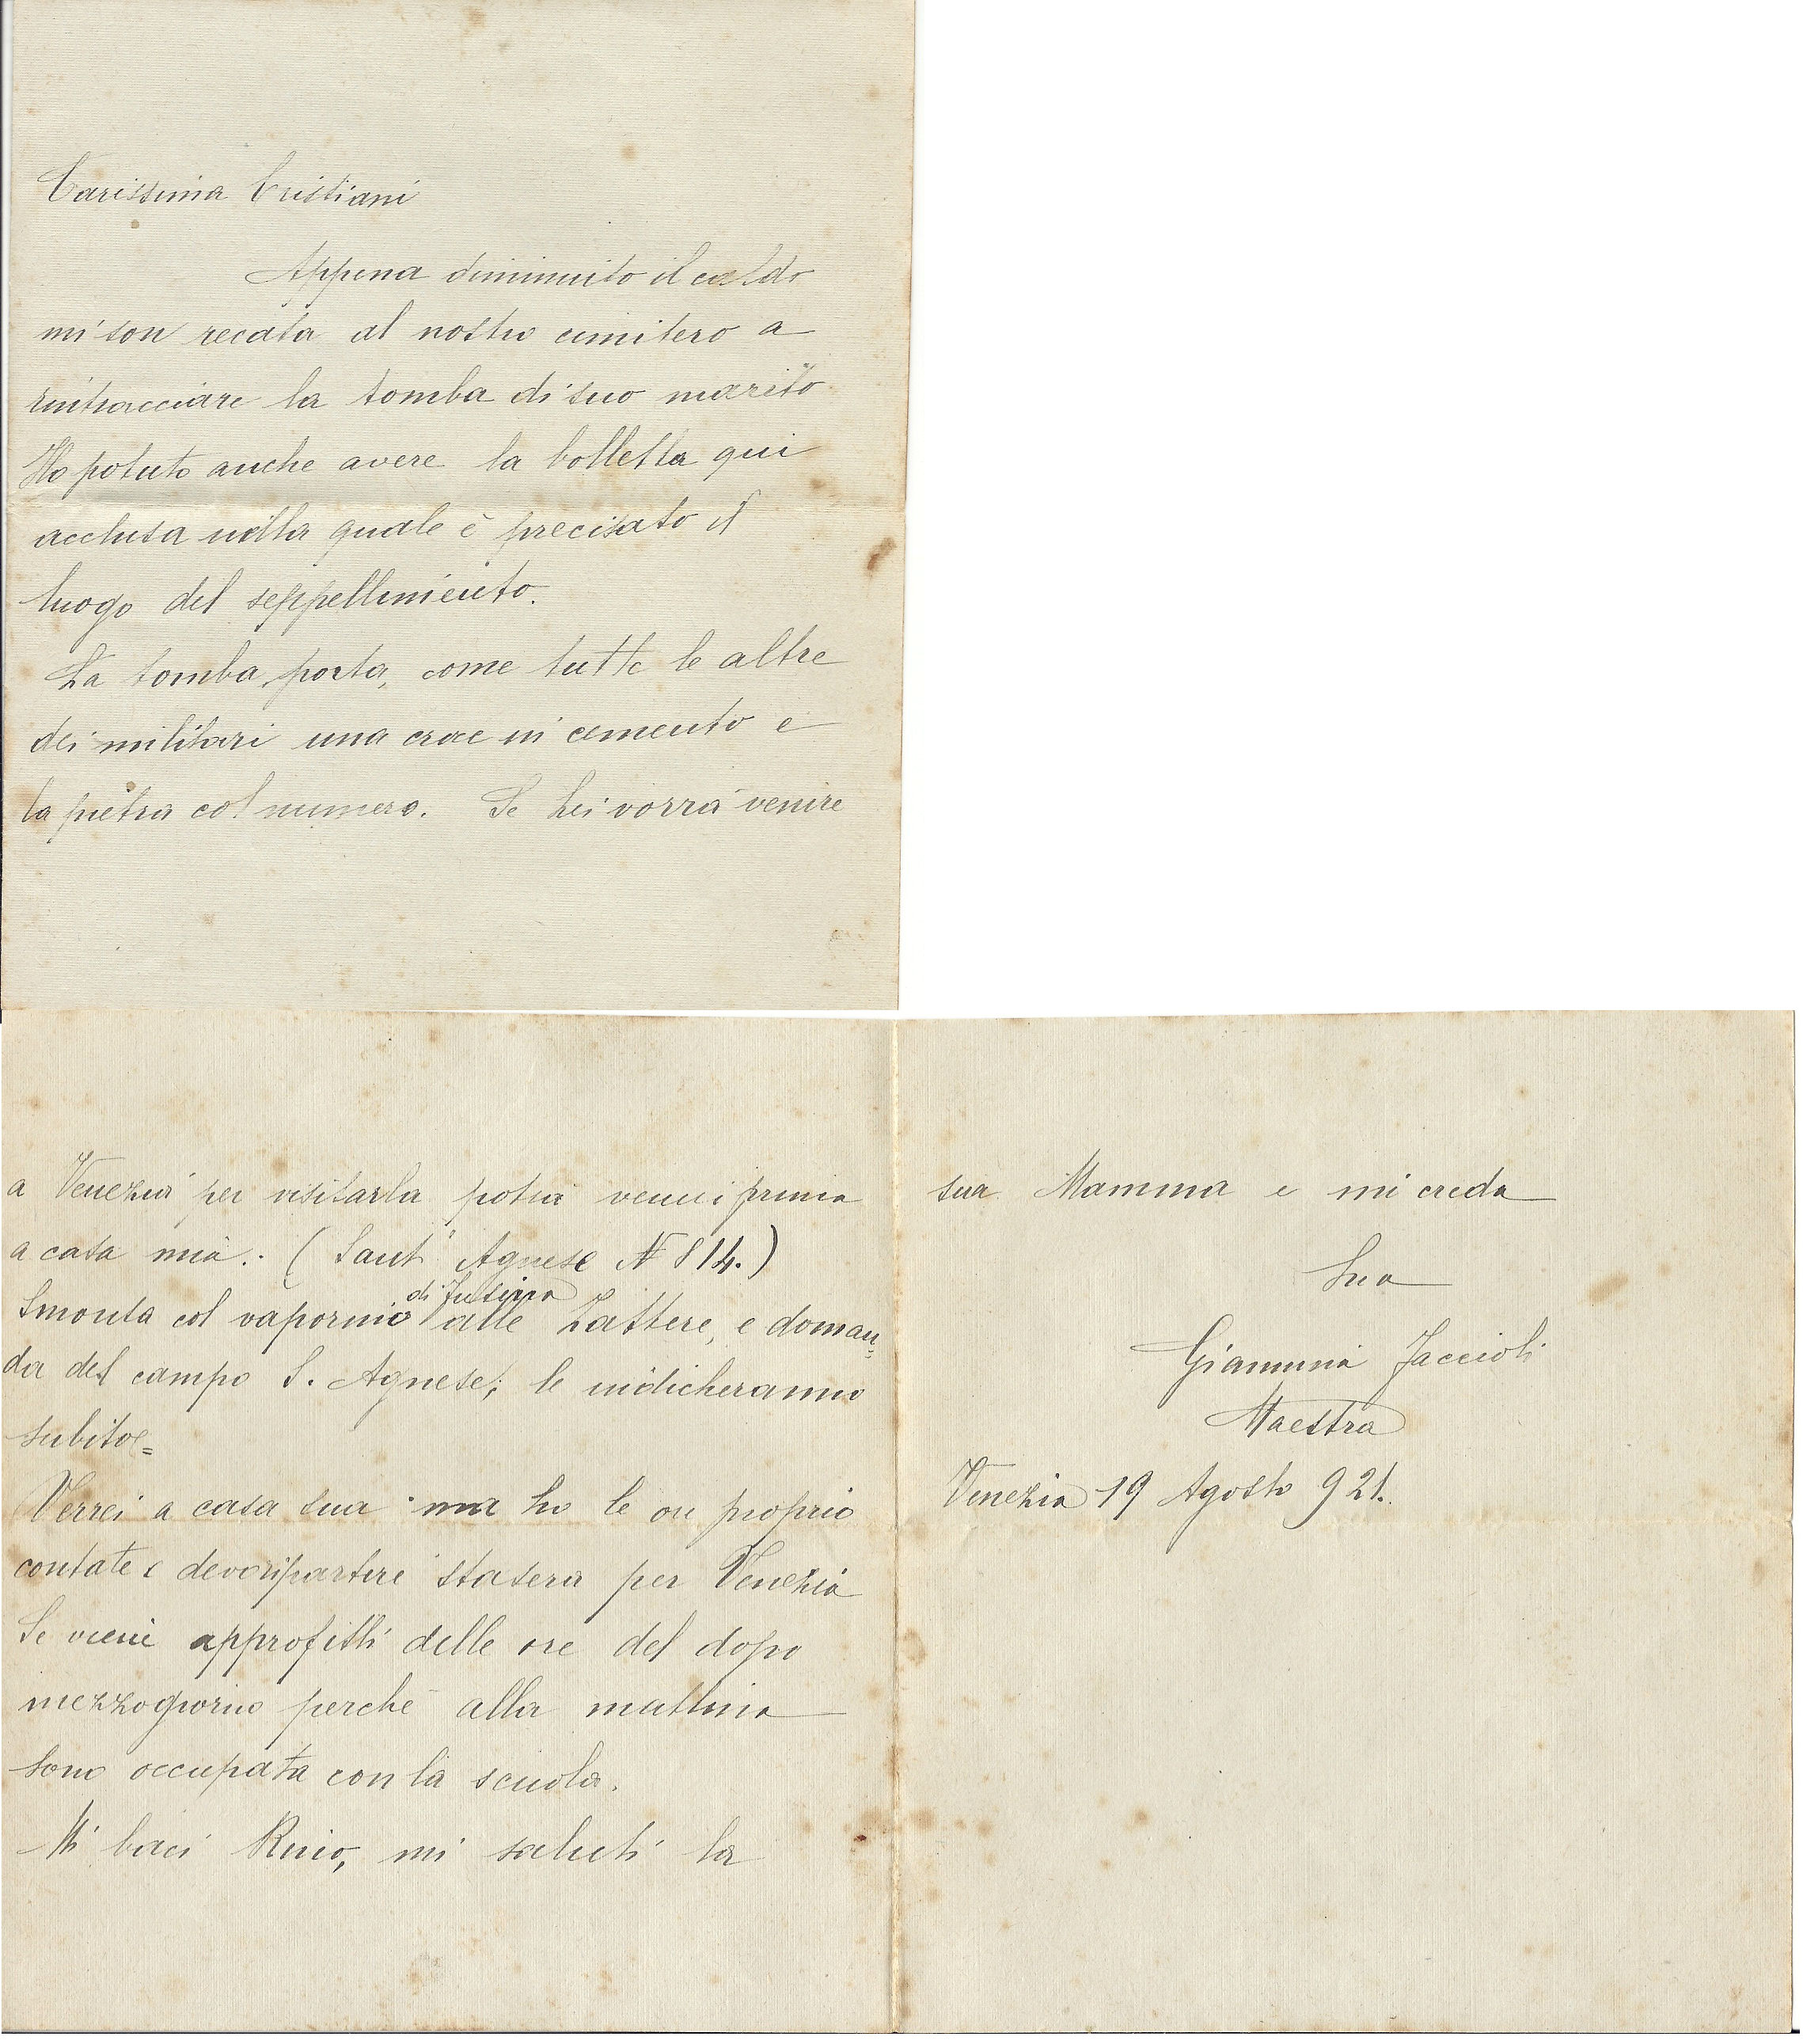 Carissima Cristiani
Appena diminuito il caldo
mi son recata al nostro cimitero a
rintracciare la tomba di suo marito
Ho potuto anche avere la bolletta qui
acclusa nella quale è precisato il
luogo del seppellimento.
La tomba porta, come tutte le altre
dei militari una croce in cemento e
la pietra col numero. Se Lei vorrà venire
a Venezia per visitarla potrà venire prima
a casa mia. (Sant' Agnese N 814.)
di Fusina
Smonta col vaporino alle Zattere, e doman=
da del campo S. Agnese; le indicheranno
subito=
Verrei a casa sua ma ho le ore proprio
contate e devo ripartire stasera per Venezia
Se viene approfitti delle ore del dopo
mezzogiorno perchè alla mattina
sono occupata con la scuola.
Mi baci Rino, mi saluti la
sua Mamma e mi creda
Sua
Giannina Faccioli
Maestra
Venezia 19 Agosto 921.